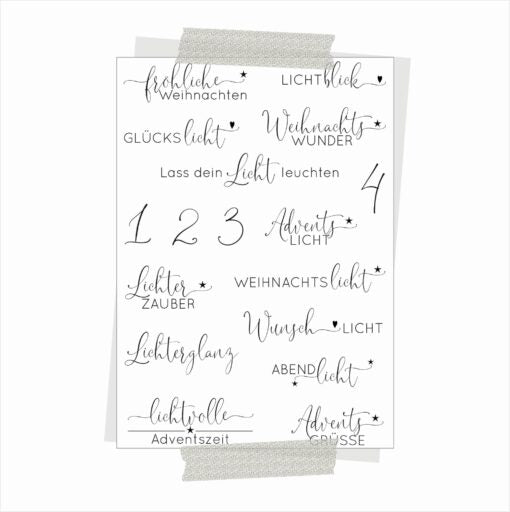 fröhliche
Weihnachten
LICHTblick
GLÜCKSlicht
Weihnachts
WUNDER
Lass dein Licht leuchten
4
1 2 3
Advents
LICHT
Lichter
ZAUBER
WEIHNACHTSlicht
Wunsch LICHT
Lichterglanz
ABENDlicht
lichtvolle
Adventszeit
Advents
GRÜSSE